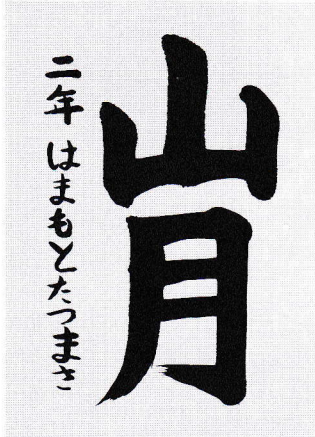 山月
二年 はまもとたつまさ